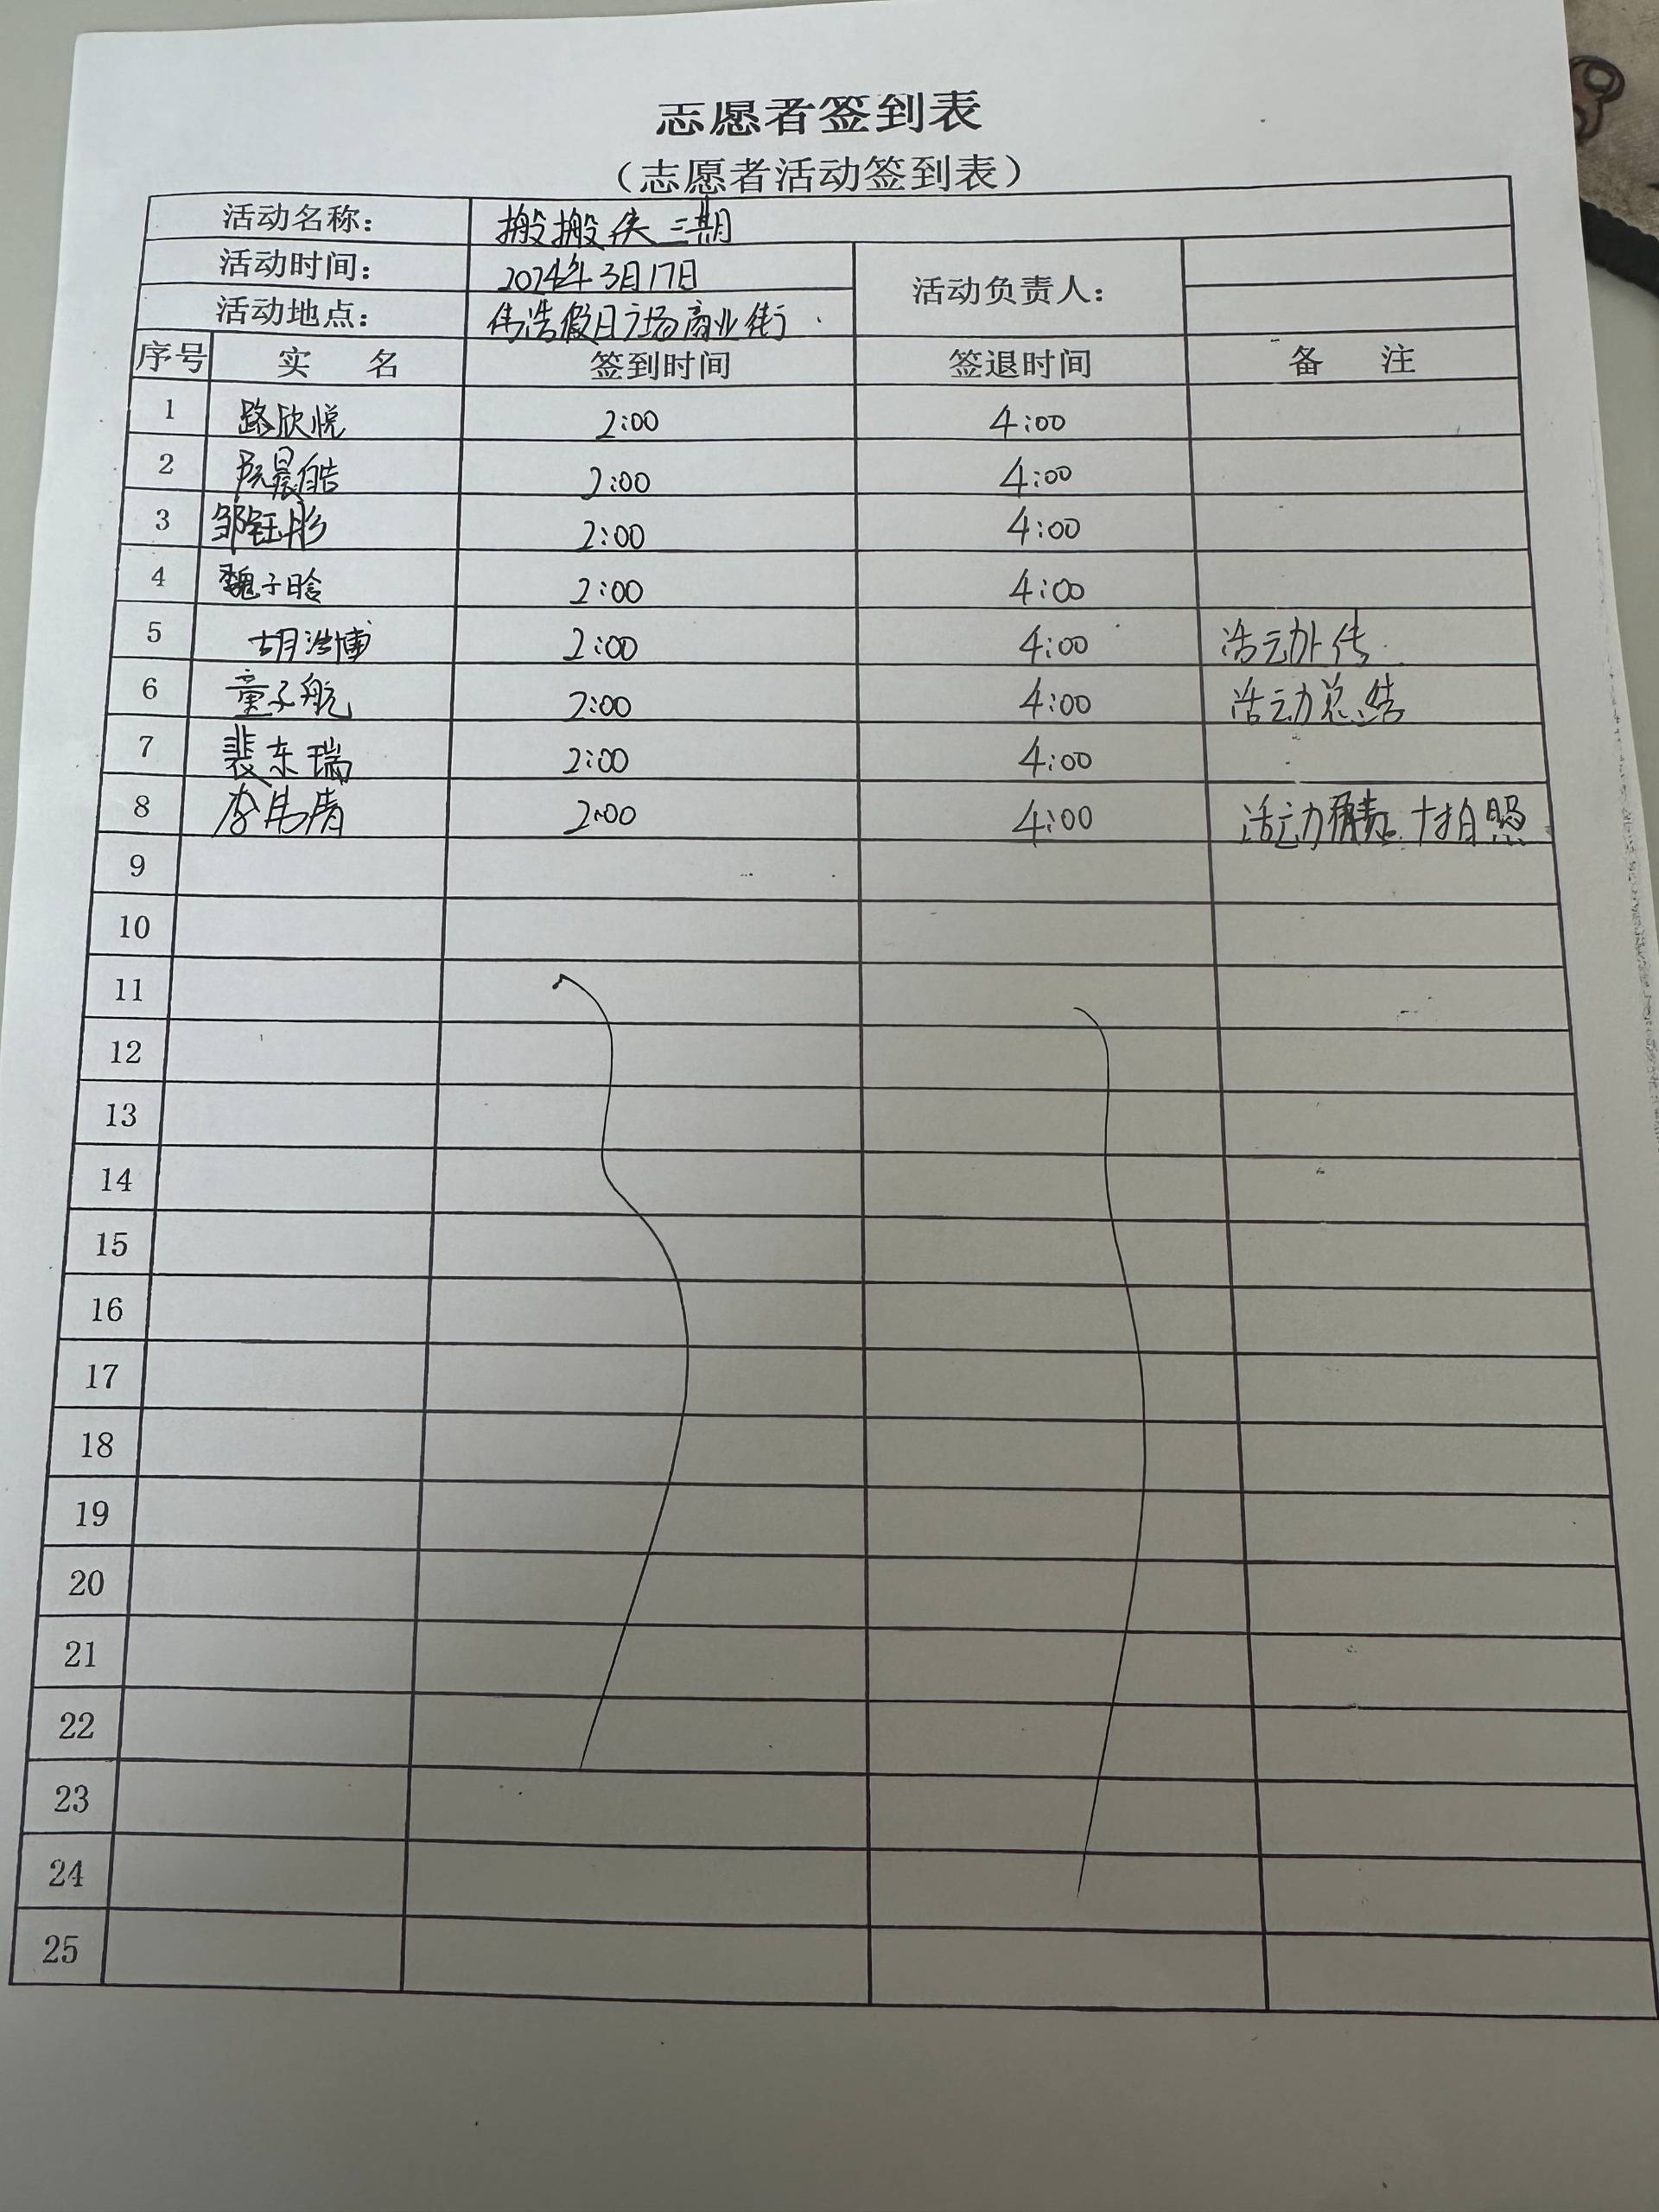 志愿者签到表
（志愿者活动签到表）
活动名称： 搬搬侠二期
活动时间： 2024年3月17日 活动负责人：
活动地点： 伟浩假日广场商业街
序号 实 名 签到时间 签退时间 备 注
1 路欣悦 2:00 4:00
2 阮晨皓 2:00 4:00
3 邹钰彤 2:00 4:00
4 魏子晗 2:00 4:00
5 胡浩博 2:00 4:00 活动外传
6 童子航 2:00 4:00 活动总结
7 裴东瑞 2:00 4:00
8 李伟倩 2:00 4:00 活动 拍照
9
10
11
12
13
14
15
16
17
18
19
20
21
22
23
24
25